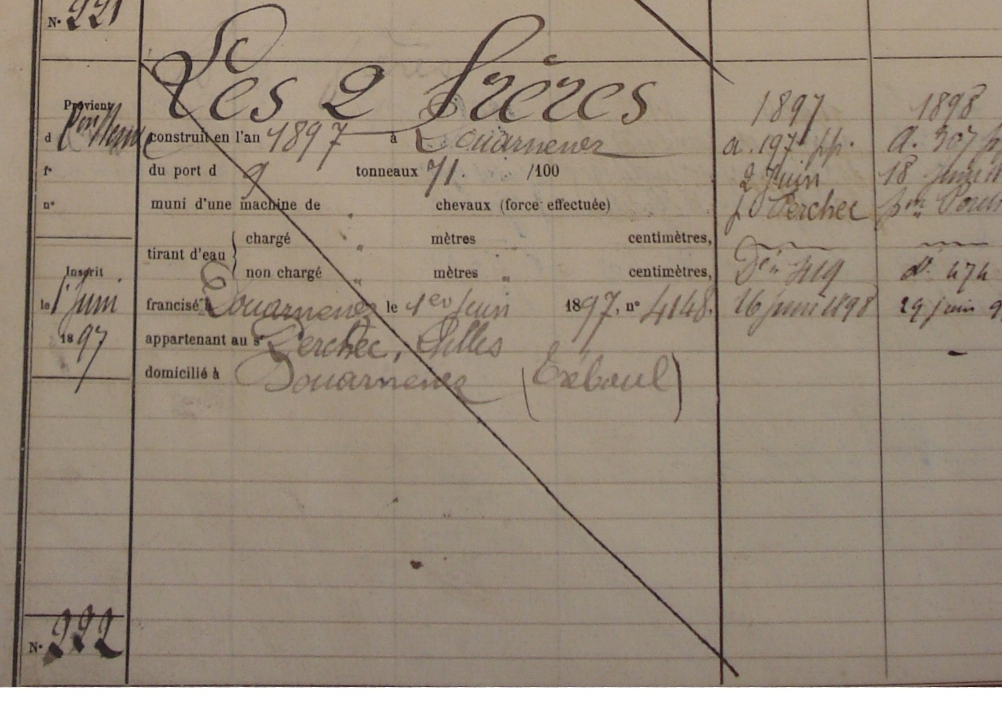 N° 221
Les 2 frères
Provient
d
construit en l'an 1897 à Douarnenez
f°
du port d 9 tonneaux 71. /100
n°
muni d'une machine de " chevaux (force effectuée)
tirant d'eau { chargé " mètres " centimètres,
non chargé " mètres " centimètres,
Inscrit
le 1er Juin 1897
francisé à Douarnenez le 1er Juin 1897, n° 4148.
appartenant au sr Perchec, Gilles
domicilié à Douarnenez (Tréboul)
N° 222
1897
a. 197 pp.
2 Juin
p. Perchec
Dén 419
16 juin 1898
1898
a. 307 p
18 juin
D. 474
29 juin 9